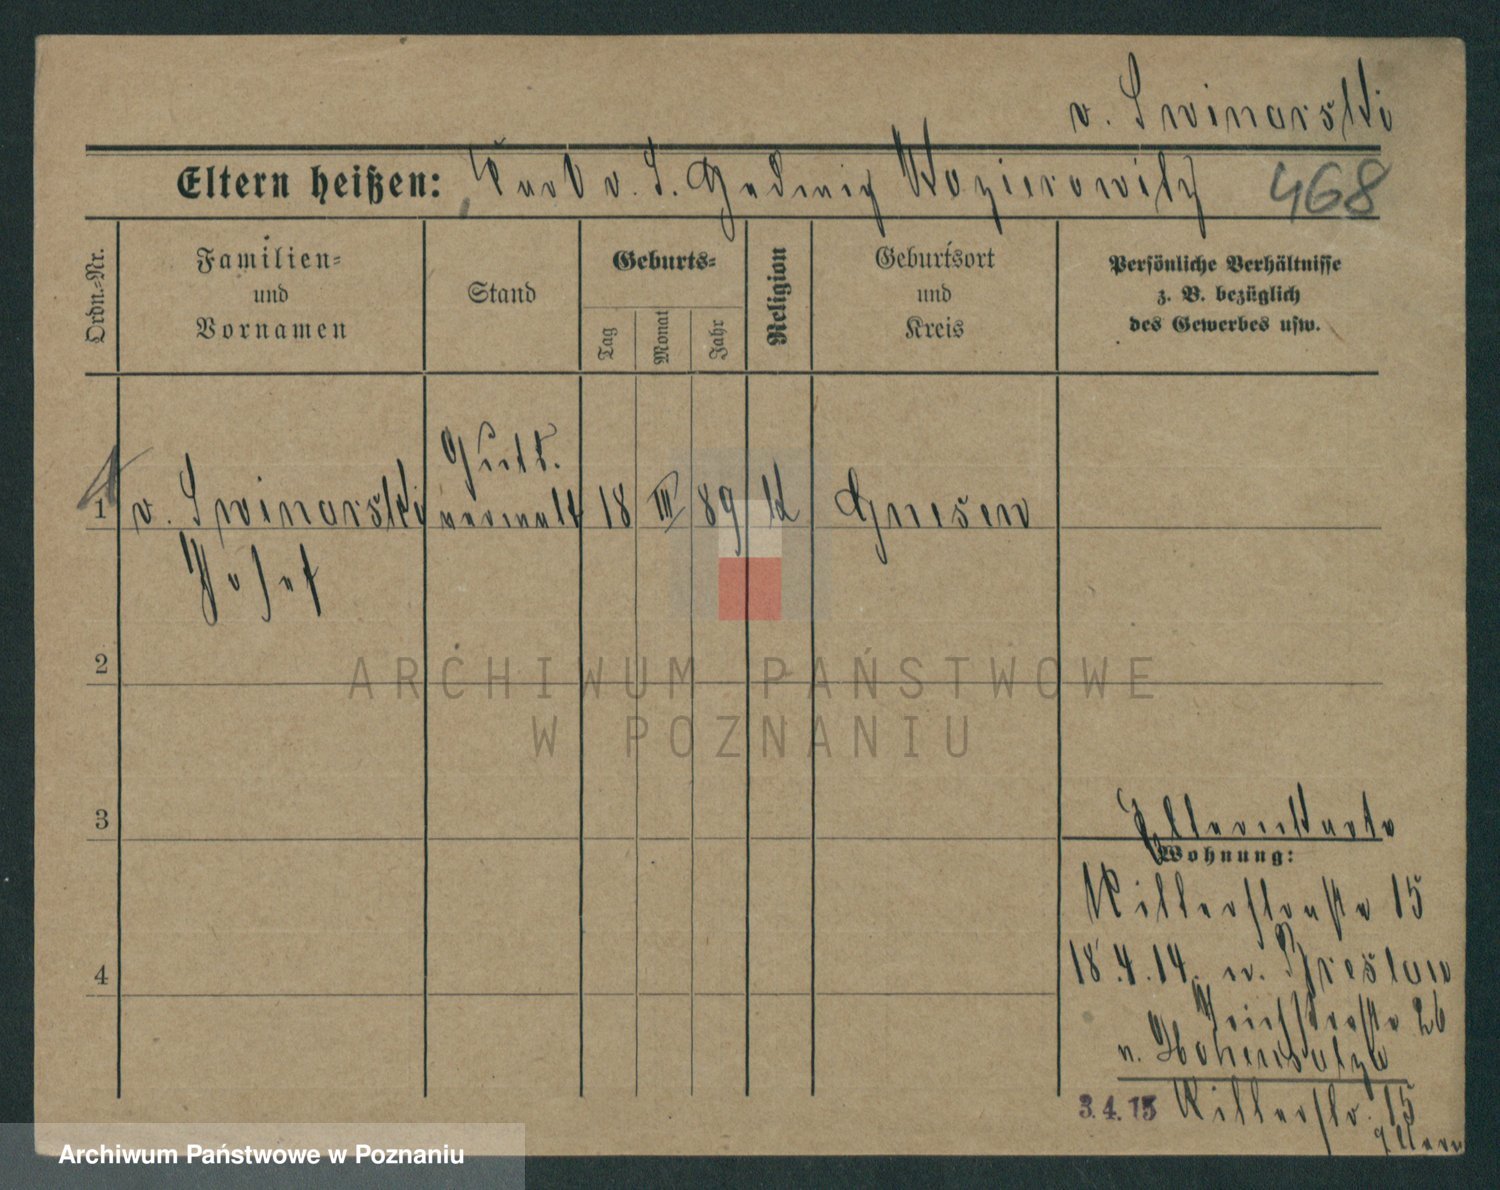 v. Swinarski
Eltern heißen: Kurt v. S. Hedwig Kozierowitz 468
Ordn.-Nr.
Familien-
und
Vornamen
Stand
Geburts-
Tag
Monat
Jahr
Religion
Geburtsort
und
Kreis
Persönliche Verhältnisse
z. B. bezüglich
des Gewerbes usw.
Guts.
1 v. Swinarski verwalt 18 III 89 K Gnesen
Josef
2
ARCHIWUM PAŃSTWOWE
W POZNANIU
3
Elternkarte
Wohnung:
Ritterstraße 15
4
18.4.14. n. Breslau
Teichstraße 26
n. Hohensalza
3.4.15 Ritterstr. 15
Eltern
Archiwum Państwowe w Poznaniu